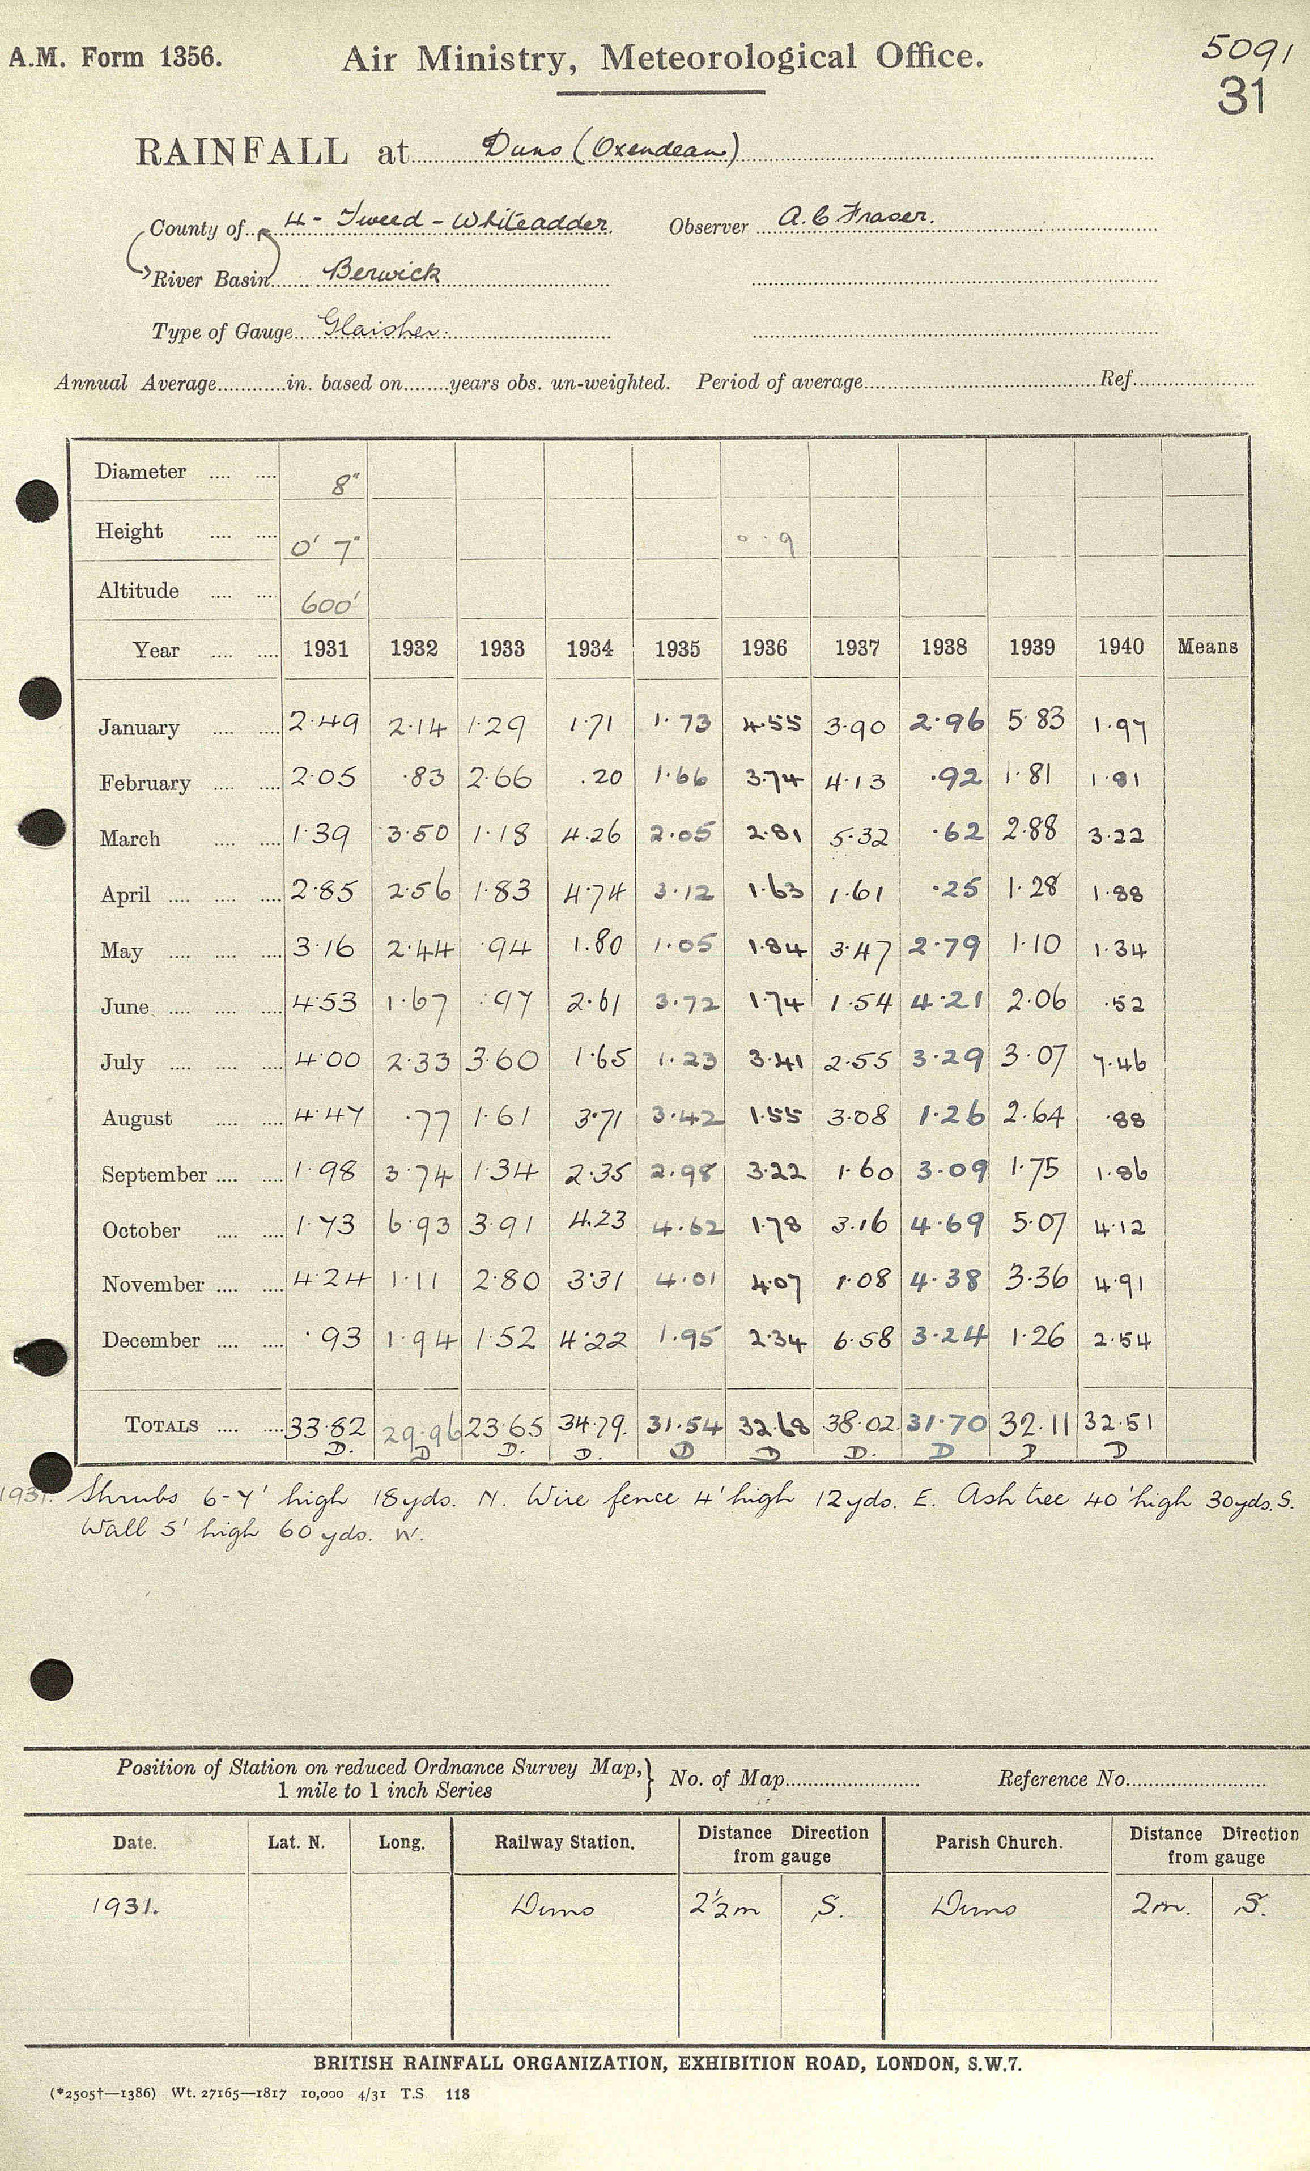 A.M. Form 1356. Air Ministry, Meteorological Office. 5091
31
RAINFALL at Duns (Oxendean)
County of 4 - Tweed - Whiteadder Observer A. C Fraser.
River Basin Berwick
Type of Gauge Glaisher.
Annual Average............in. based on........years obs. un-weighted. Period of average............ Ref............
Diameter .... .... 8"
Height .... .... 0' 7" 0 · 9
Altitude .... .... 600'
Year .... .... 1931 1932 1933 1934 1935 1936 1937 1938 1939 1940 Means
January .... .... 2·49 2·14 1·29 1·71 1·73 4·55 3·90 2·96 5·83 1·97
February .... .... 2·05 ·83 2·66 .20 1·66 3·74 4·13 ·92 1·81 1·81
March .... .... 1·39 3·50 1·18 4·26 2·05 2·81 5·32 ·62 2·88 3·22
April .... .... .... 2·85 2·56 1·83 4·74 3·12 1·63 1·61 ·25 1·28 1·88
May .... .... .... 3·16 2·44 ·94 1.80 1·05 1·84 3·47 2·79 1·10 1·34
June .... .... .... 4·53 1·67 ·97 2·61 3·72 1·74 1·54 4·21 2·06 ·52
July .... .... .... 4·00 2·33 3·60 1·65 1·23 3·41 2·55 3·29 3·07 7·46
August .... .... 4·47 ·77 1·61 3·71 3·42 1·55 3·08 1·26 2·64 ·88
September .... .... 1·98 3·74 1·34 2·35 2·98 3·22 1·60 3·09 1·75 1·86
October .... .... 1·73 6·93 3·91 4.23 4·62 1·78 3·16 4·69 5·07 4·12
November .... .... 4·24 1·11 2·80 3·31 4·01 4·07 1·08 4·38 3·36 4·91
December .... .... ·93 1·94 1·52 4·22 1·95 2·34 6·58 3·24 1·26 2·54
TOTALS .... .... 33·82 29·96 23·65 34·79. 31·54 32·68 38·02 31·70 32·11 32·51
D. D D. D. D D D. D D D
1931. Shrubs 6-7' high 18yds. N. Wire fence 4' high 12yds. E. Ash tree 40' high 30yds. S.
Wall 5' high 60yds. W.
Position of Station on reduced Ordnance Survey Map, } No. of Map............ Reference No............
1 mile to 1 inch Series
Date. Lat. N. Long. Railway Station. Distance Direction from gauge Parish Church. Distance Direction from gauge
1931. Duns 2½m S. Duns 2m. S.
BRITISH RAINFALL ORGANIZATION, EXHIBITION ROAD, LONDON, S.W.7.
(*2505†—1386) Wt. 27165—1817 10,000 4/31 T.S 118